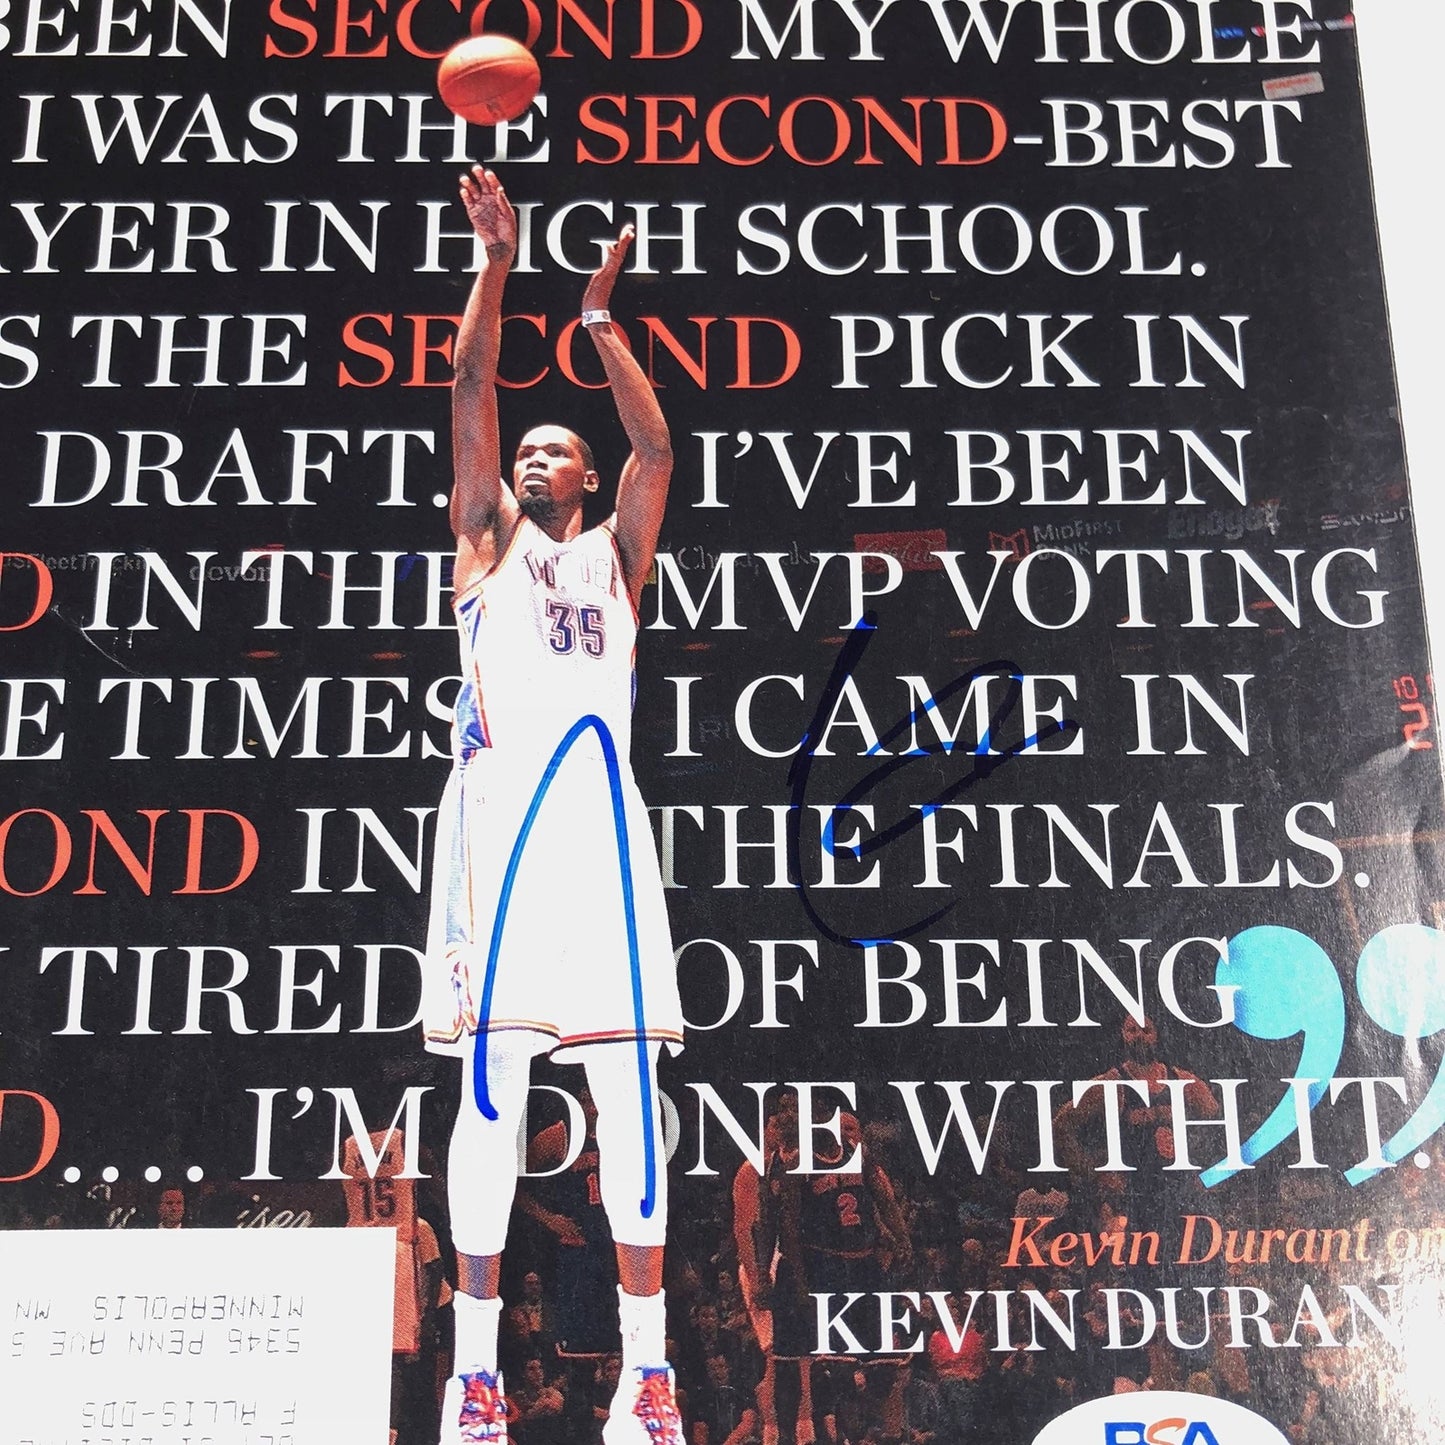 BEEN SECOND MY WHOLE
I WAS THE SECOND-BEST
AYER IN HIGH SCHOOL.
S THE SECOND PICK IN
DRAFT. I'VE BEEN
D IN THE MVP VOTING
E TIMES I CAME IN
OND IN THE FINALS.
TIRED OF BEING
D.... I'M DONE WITH IT.”
Kevin Durant on
KEVIN DURAN
THUNDER
35
devon
MIDFIRST
BANK
15
2
10
MINNEAPOLIS MN
5346 PENN AVE S
F ALLIS-DDS
PSA